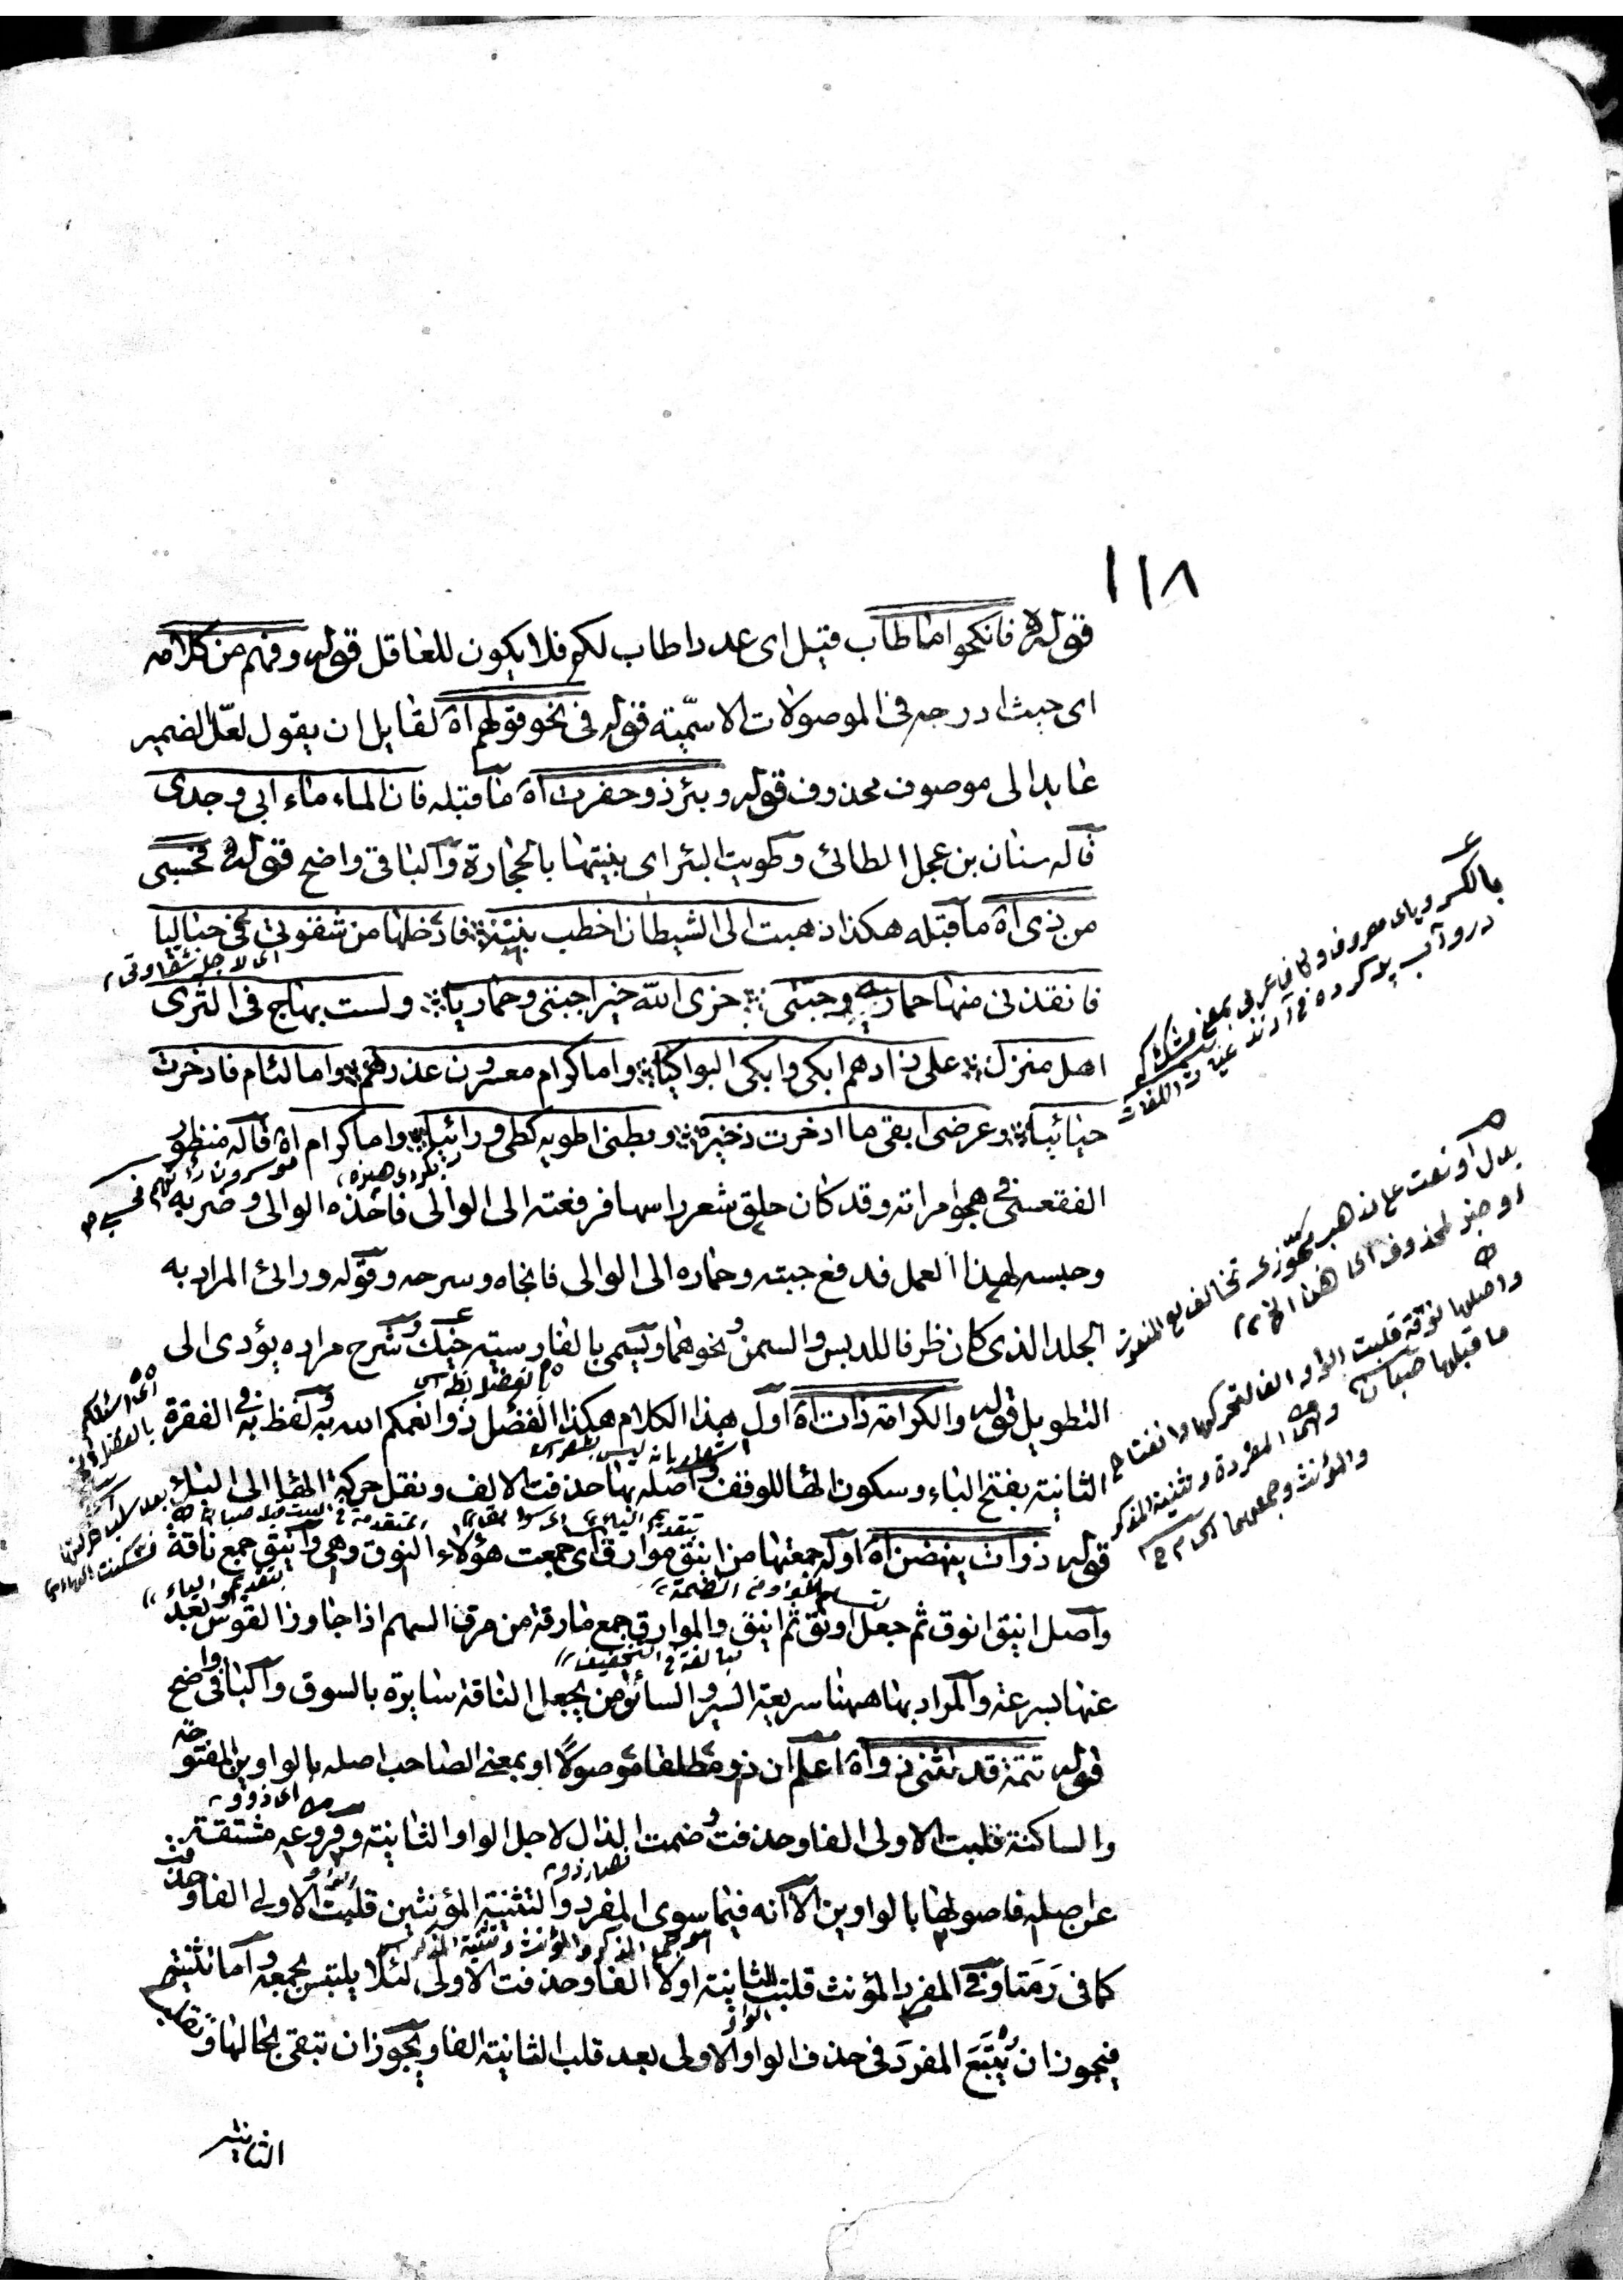 ١١٨
قوله فانكحوا ما طاب قيل اى عددا طاب لكم فلا يكون للعاقل قوله وفهم من كلامه
اى حيث ادرجه فى الموصولات الاسمية قوله فى نحو قولهم اه لقايل ان يقول لعل الضمير
عايد الى موصوف محذوف قوله وبئر ذو حفرت اه ما قبله فان الماء ماء ابى وجدى
قاله سنان بن عجل الطائى وطويت البئر اى بنيتها بالحجارة والباقى واضح قوله فحسبى
من ذى اه ما قبله هكذا ذهبت الى الشيطان اخطب بنته فادخلها من شقوتى فى حباليا
اى لاجل شقاوتى
فانقذنى منها حمارى وجبتى جزى الله خيرا جبتى وحماريا ولست بهاج فى القرى
اهل منزل على زادهم ابكى وابكى البواكيا واما كرام معسرون عذرتهم واما لئام فادخرت
حيائيا وعرضى ابقى ما ادخرت ذخيرة وبطنى اطويه كطى ورائيا واما كرام اه قاله منظور
الفقعسى فى هجو امراته وقد كان حلق شعر راسها فرفعته الى الوالى فاخذه الوالى وضربه
وحبسه لهذا العمل فدفع جبته وحماره الى الوالى فانجاه وسرحه وقوله ورائى المراد به
الجلد الذى كان ظرفا للدبس والسمن ونحوهما ويسمى بالفارسيته خيك وشرح مراده يؤدى الى
التطويل قوله والكرامة ذات اه اول هذا الكلام هكذا الفضل ذو انعمكم الله به ولفظ به فى الفقرة
الثانية بفتح الباء وسكون الهاء للوقف واصله بها حذفت الالف ونقل حركة الهاء الى الباء بعد سلب حركتها
قوله ذوات ينهضن اه اوله جمعتها من اينق موارق اى جمعت هؤلاء النوق وهى واينق جمع ناقة
واصل اينق انوق ثم جعل اونق ثم اينق والموارق جمع مارقة من مرق السهم اذا جاوز القوس بعد
مبالغة فى التخفيف
عنها بسرعة والمراد بها ههنا سريعة السير والسائق من يجعل الناقة سايرة بالسوق والباقى واضح
قوله تتمة قد تثنى ذو اه اعلم ان ذو مطلقا موصولا او بمعنى الصاحب اصله بالواوين المفتوحة
اى ذوو
والساكنة قلبت الاولى الفا وحذفت وضمت الذال لاجل الواو الثانية وفروعه مشتقة
فصار ذو
عن اصله فاصولها بالواوين الا انه فيما سوى المفرد والتثنية المؤنثين قلبت الاولى الفا وحذفت
كما فى رمتا وفى المفرد المؤنث قلبت الثانية اولا الفا وحذفت الاولى لئلا يلتبس بجمعه واما تثنيته
فيجوز ان يتبع المفرد فى حذف الواو الاولى بعد قلب الثانية الفا ويجوز ان تبقى بحالها
الثانية
بالكسر وياى معروف وكاف عربى بمعنى مشك كه
درو آب پر كرده آرند غياث اللغات
او خبر لمحذوف اى هذا الخ
واصلها نوقة قلبت الواو الفا لتحركها وانفتاح
ما قبلها صبان
المفردة وتثنية المذكر
والمؤنث وجمعهما